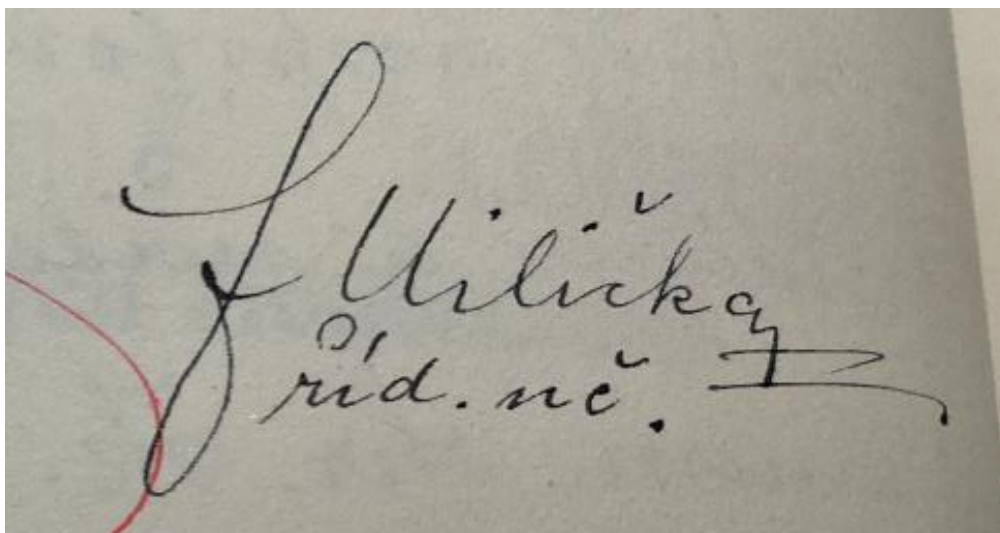 Milička
říd. uč.